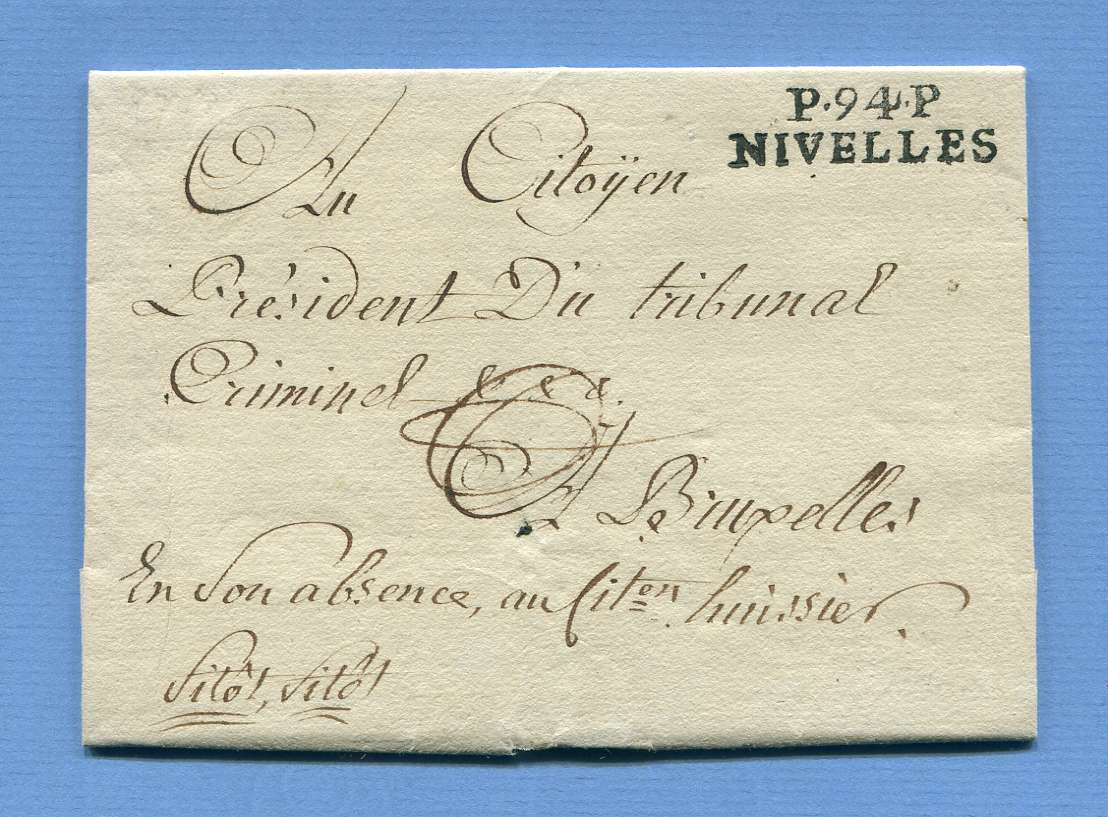 P.94.P
NIVELLES
Au Citoÿen
Président Du tribunal
Criminel &c &c &.
A Bruxelles
En Son absence, au Citen huissier.
sitôt, sitôt